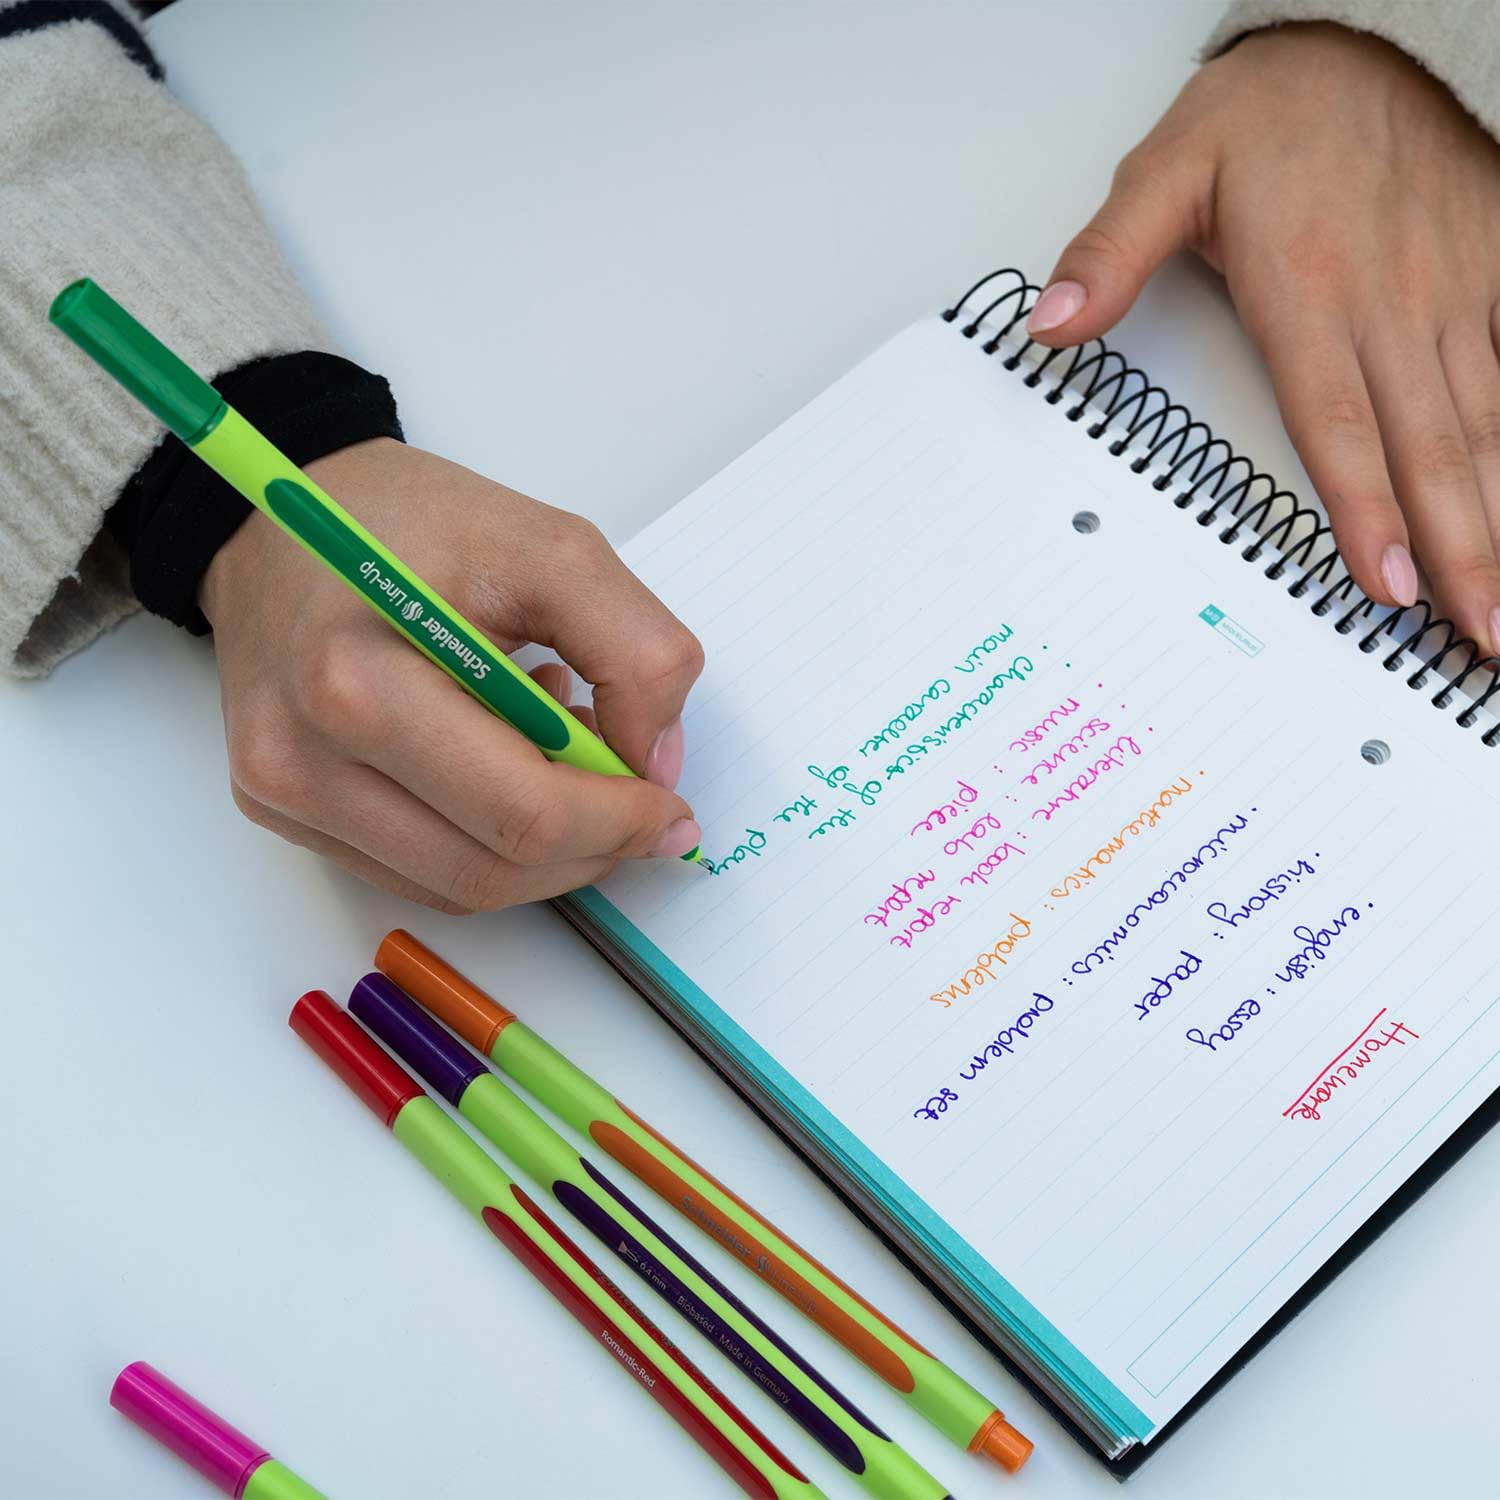 Homework
· english : essay
· history : paper
· microeconomics : problem set
· mathematics : problems
· literature : book report
· science : lab report
· music : piece
· characteristics of the
main of the play
Schneider Line-Up
Schneider Line-Up
0,4 mm Biobased · Made in Germany
Romantic-Red